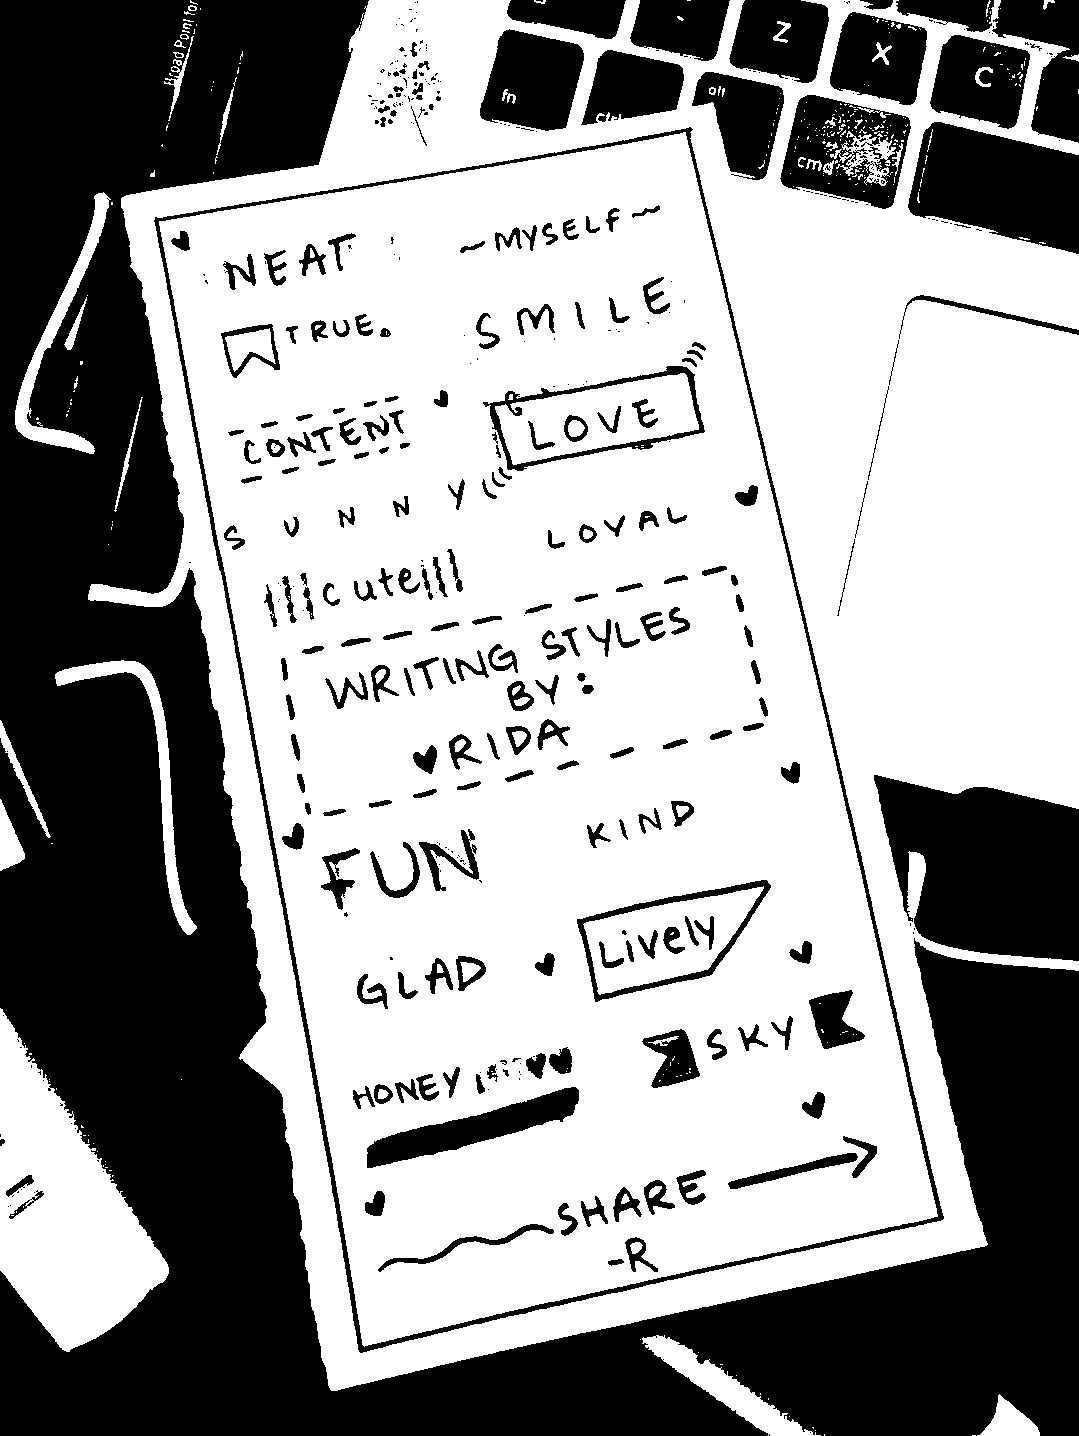 Broad Point for
Z X C
fn alt cmd
NEAT ~MYSELF~
TRUE. SMILE
CONTENT LOVE
SUNNY LOYAL
|||cute|||
WRITING STYLES
BY:
♥RIDA
FUN KIND
GLAD Lively
HONEY SKY
SHARE
-R